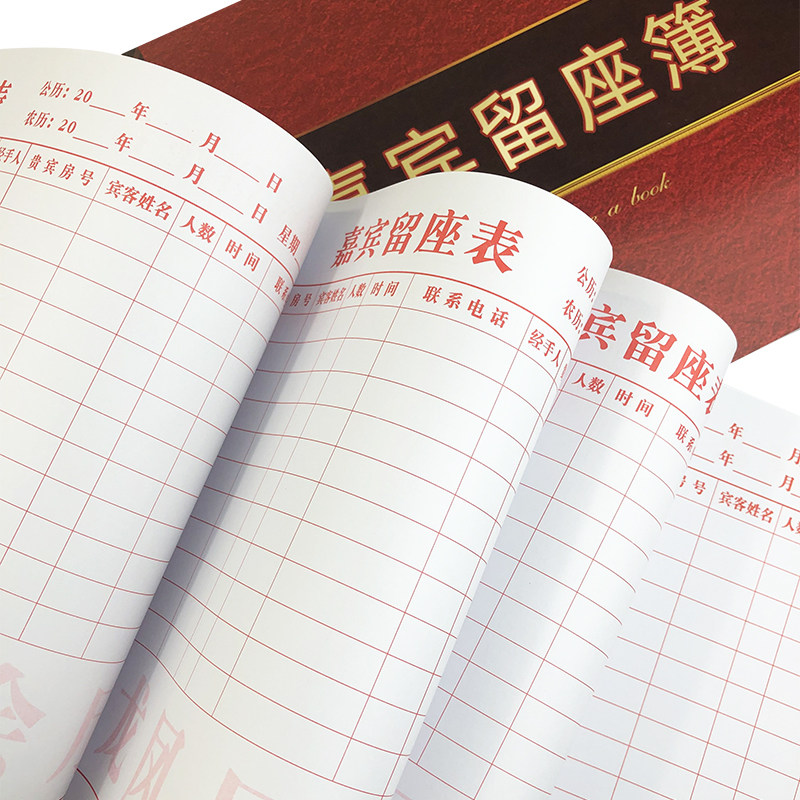 嘉宾留座簿
a book
公历：20___年___月___日
农历：20___年___月___日 星期
经手人 贵宾房号 宾客姓名 人数 时间 联系
嘉宾留座表
房号 宾客姓名 人数 时间 联系电话 经手人
公历:
农历:
宾留座表
人数 时间 联系
年 月
年 月
房号 宾客姓名 人数